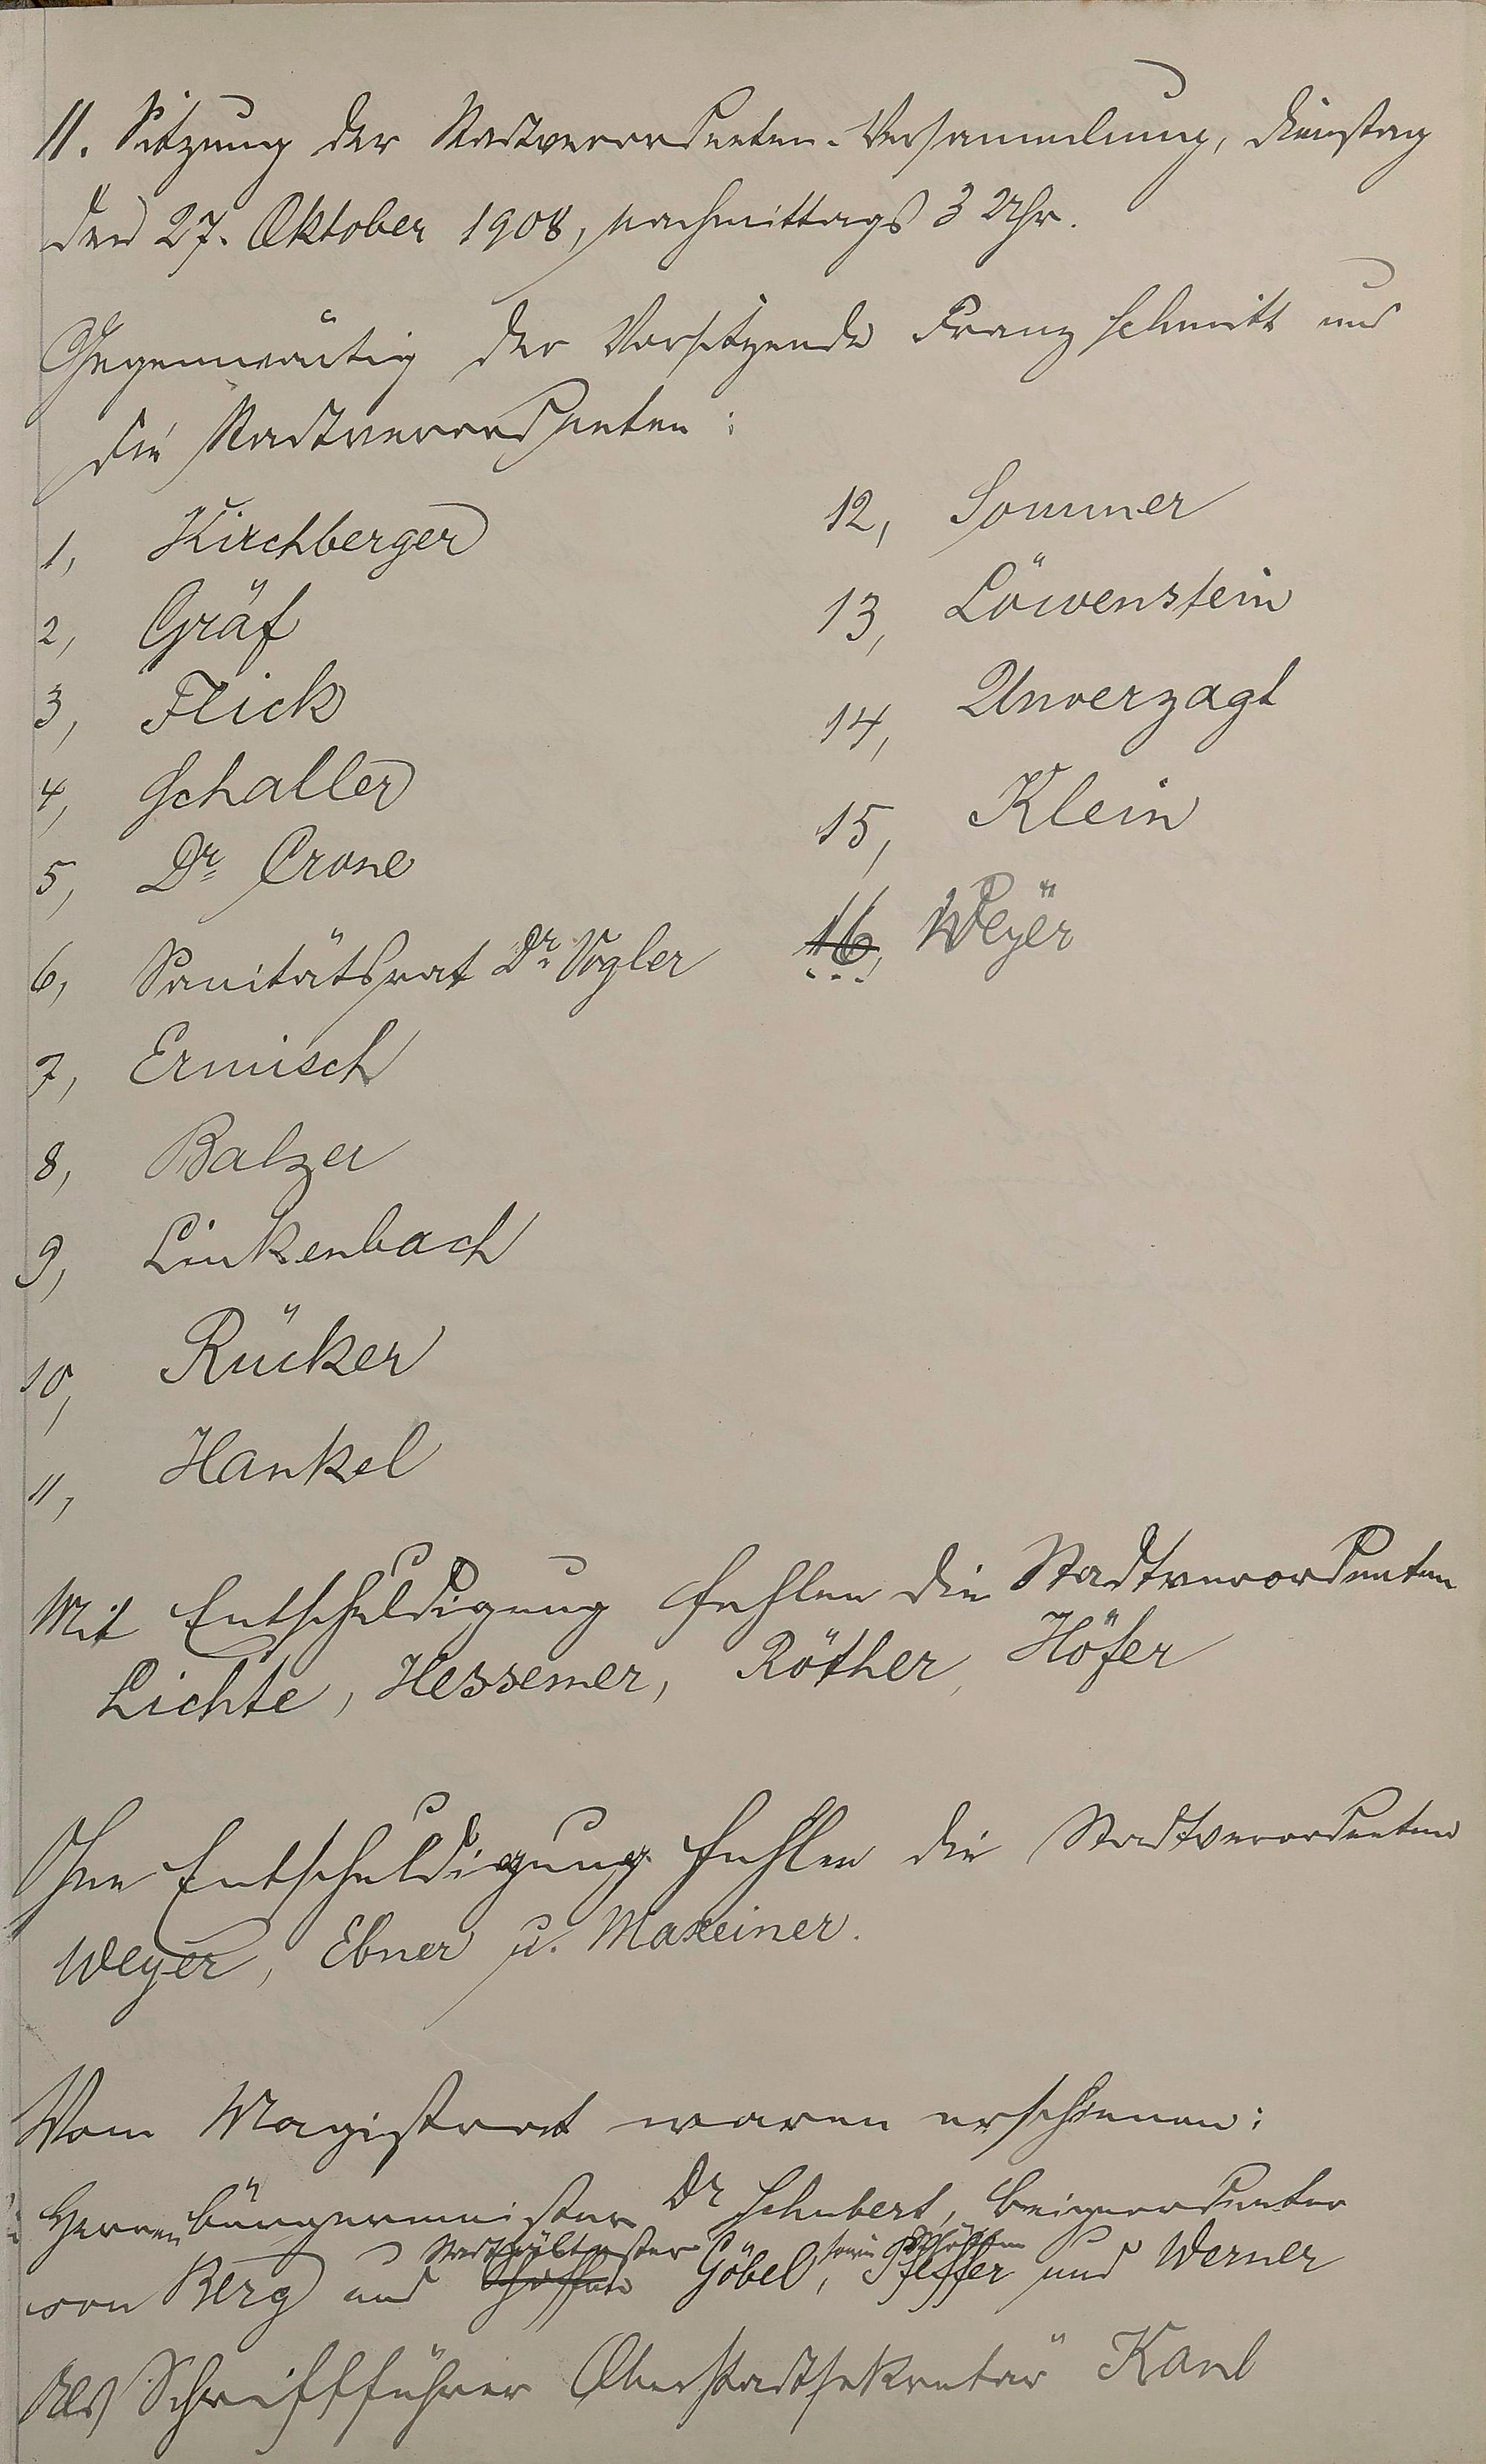 11. Sitzung der Stadtverordneten-Versammlung, Dienstag
den 27. Oktober 1908, nachmittags 3 Uhr.
Gegenwärtig der Vorsitzende Franz Schmitt und
die Stadtverordneten:
1, Kirchberger
2, Gräf
3, Flick
4, Schaller
5, Dr. Crone
6, Sanitätsrat Dr. Vogler
7, Ermisch
8, Balzer
9, Linkenbach
10, Rücker
11, Hankel
12, Sommer
13, Löwenstein
14, Unverzagt
15, Klein
16, Weyer
Mit Entschuldigung fehlen die Stadtverordneten
Lichte, Hessemer, Röther, Höfer
Ohne Entschuldigung fehlen die Stadtverordneten
Weyer, Ebner u. Maxeiner.
Vom Magistrat waren erschienen:
Herren Bürgermeister Dr Schubert, Beigeordneter
Stadtältester sowie Schöffen
von Berg und Schöffen Göbel, Pfeiffer und Werner
Als Schriftführer Oberstadtsekretär Kaul